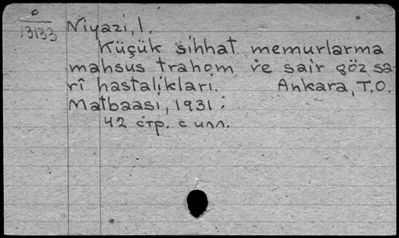 0
13133
Niyazi, I.
Küçük sihhat memurlarma
mahsus trahom ve sair göz sa-
rî hastalikları. Ankara, T.O.
Matbaasi, 1931.
42 стр. с илл.